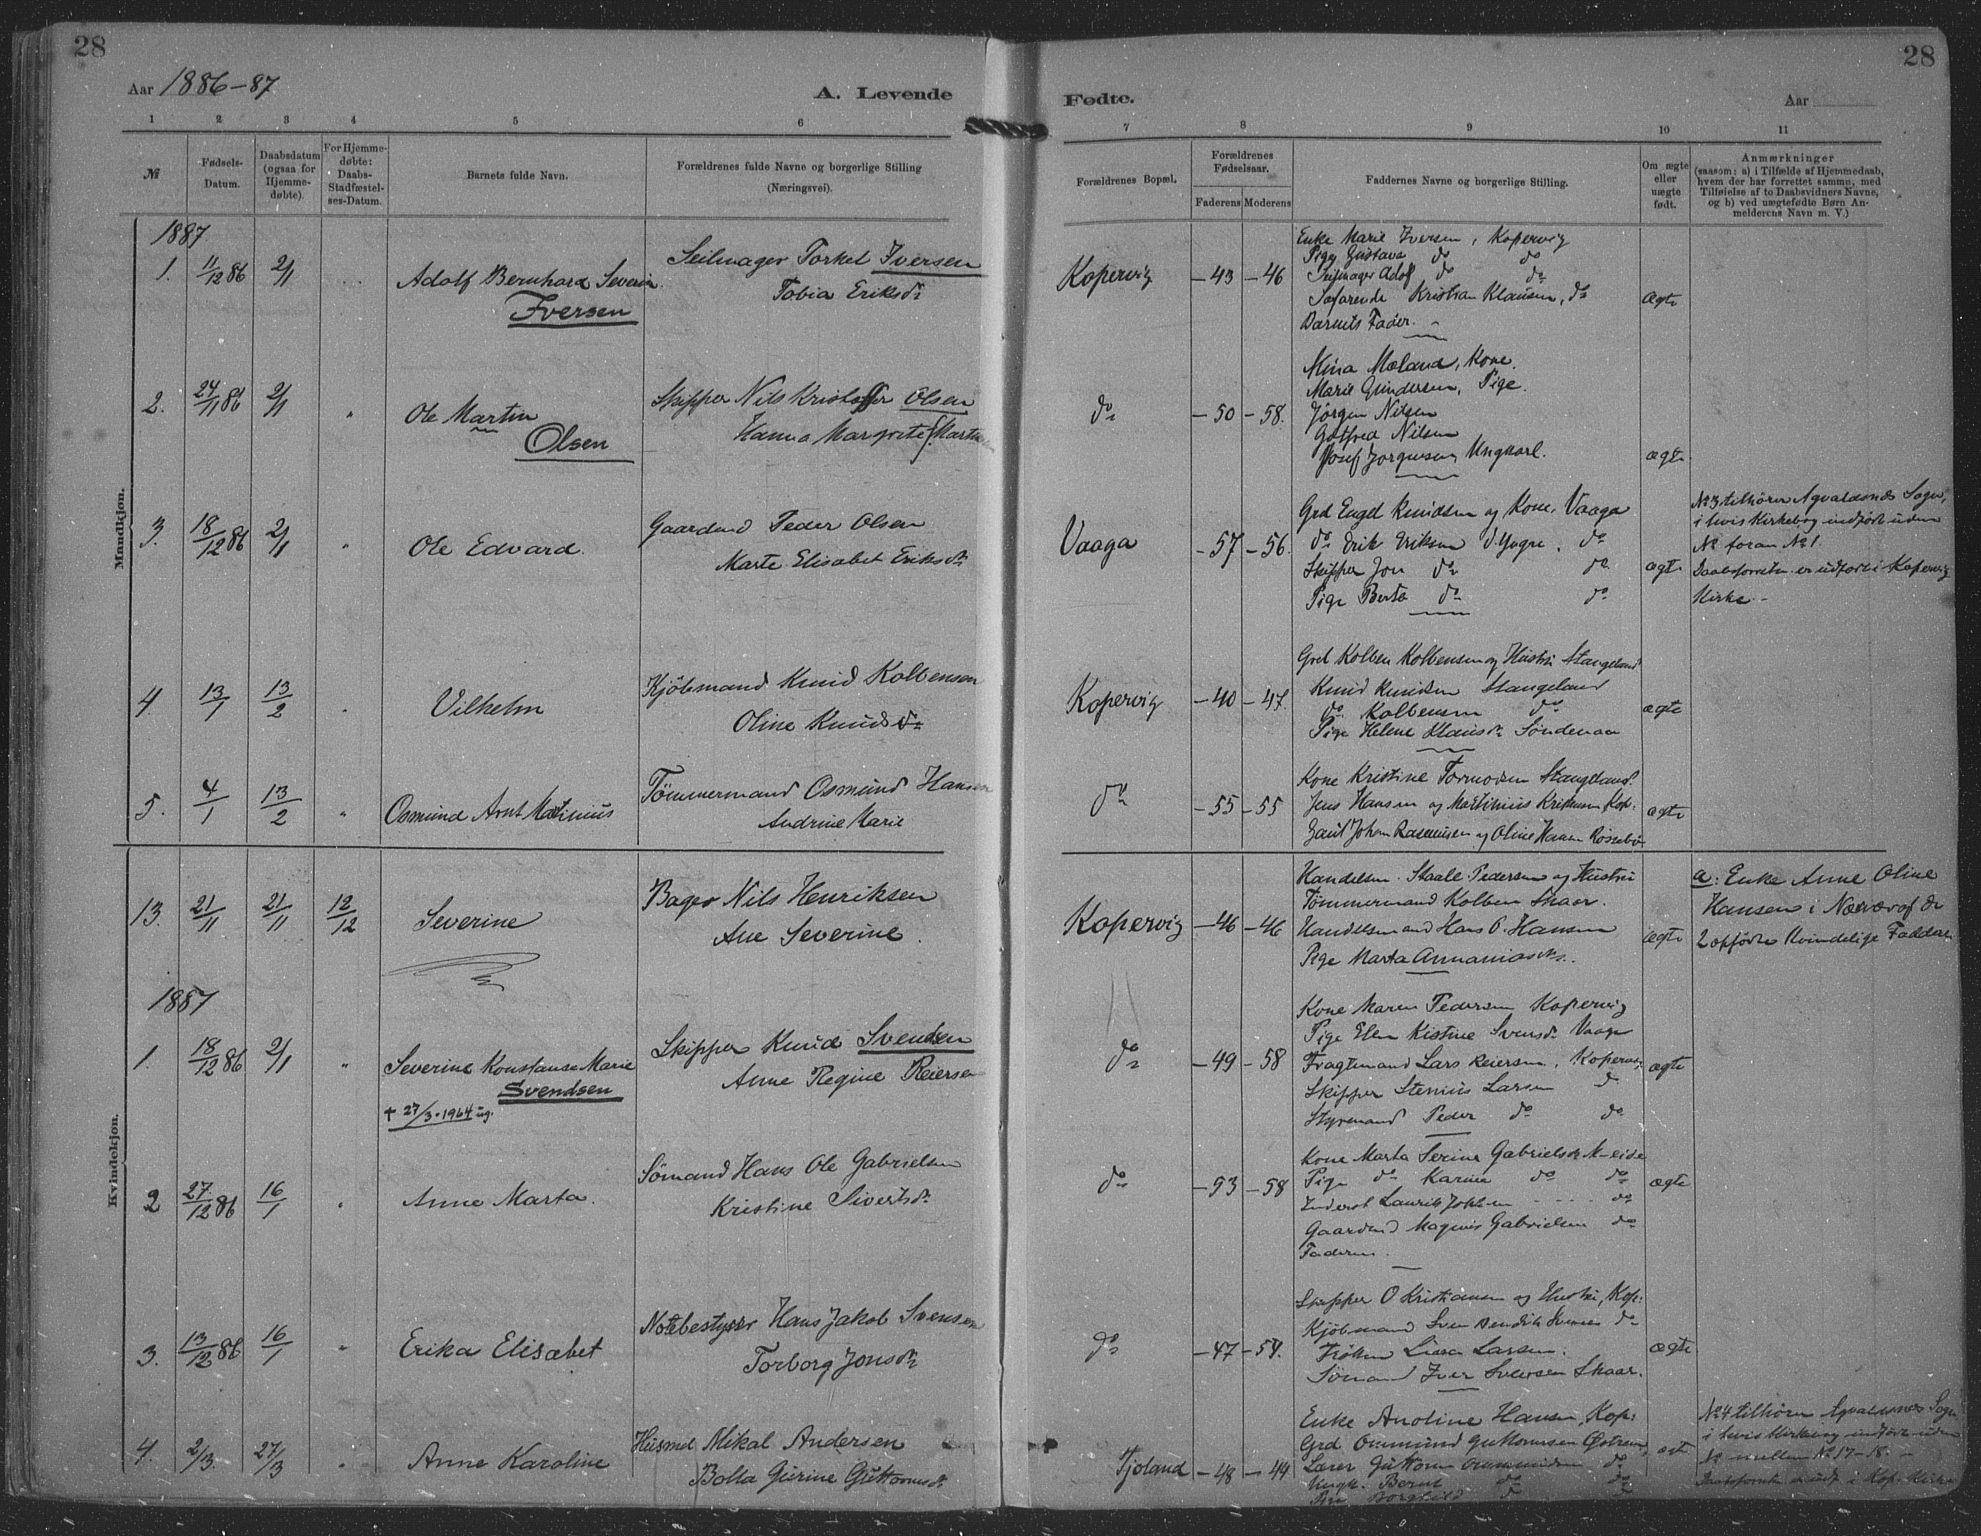 28
28
Aar 1886-87
A. Levende
Fødte.
Aar
1 2 3 4 5 6 7 8 9 10 11
№
Fødsels-
Datum.
Daabsdatum
(ogsaa for
Hjemme-
døbte).
For Hjemme-
døbte:
Daabs-
Stadfæstel-
ses-Datum.
Barnets fulde Navn.
Forældrenes fulde Navne og borgerlige Stilling
(Næringsvei).
Forældrenes Bopæl.
Forældrenes
Fødselsaar.
Faderens Moderens
Faddernes Navne og borgerlige Stilling.
Om ægte
eller
uægte
født.
Anmærkninger
(saasom: a) i Tilfælde af Hjemmedaab,
hvem der har forrettet samme, med
Tilføielse af to Daabsvidners Navne,
og b) ved uægtefødte Børn An-
melderens Navn m. V.)
Mandkjøn.
1887
1. 11/12 86 2/1
Adolf Bernhard Severin
Iversen
Seilmager Torkel Iversen
Tobia Eriksdr
Kopervig
-43 -46
Enke Marie Iversen, Kopervig
Pige Gustava do do
Seilmager Adolf do do
Søfarende Kristian Klausen, do
Barnets Fader.
ægte
2. 24/11 86 2/1 "
Ole Martin
Olsen
Skipper Nils Kristoffer Olsen
Hanna Margrete
do
-50 -58.
Mina Mæland, Kone.
Marie Gundersen, Pige.
Jörgen Nilsen
Gotfred Nilsen
Josef Jorgensen, Ungkarl.
ægte.
3. 18/12 86 2/1 "
Ole Edvard.
Gaardmd Peder Olsen
Marte Elisabet Eriksdr
Vaaga
-57 -56.
Grd Engel Knudsen og Kone. Vaaga
do Erik Eriksen d. Yngre, do
Skipper Jon do do
Pige Berta do do
ægte
No 3 tilhører Agvaldsnes Sogn,
i hvis Kirkebog indført uden
No foran No 1.
Daabsforretn. er udført i Kopervig
Kirke.
4. 13/1 13/2 "
Vilhelm
Kjöbmand Knud Kolbensen
Oline Knudsdr
Kopervig
-40 -47.
Grd Kolben Kolbensen og Hustru Stangeland
Knud Knudsen Stangeland
do Kolbensen do
Pige Helene Klausdr Søndenaa
ægte
5. 4/1 13/2 "
Osmund Arnt Martinius
Tömmermand Osmund Hansen
Andrine Marie
do
-55 -55
Kone Kristine Tormodsen Stangeland.
Jens Hansen og Martinius Kristensen Kop.
Gaut Johan Rasmussen og Oline Hansen Rossebö
ægte
Kvindekjøn.
13. 21/11 21/11 12/12
Severine
Bager Nils Henriksen
Ane Severine.
Kopervig
-46 -46
Handelsm. Staale Pedersen og Hustru
Tömmermand Kolben Skaar.
Handelsmand Hans P. Hansen
Pige Marta Annaniasdr.
ægte
a: Enke Anne Oline
Hansen i Nærvær af de
2 opførte Kvindelige Faddere
1887
1. 18/12 86 2/1 "
Severine Konstanse Marie
Svendsen
+ 27/3-1964
Skipper Knud Svendsen
Anne Regine Reiersen
do
-49 -58
Kone Maren Pedersen Kopervig
Pige Elen Kistine Svensdr Vaage
Fragtemand Lars Reiersen, Kopervig
Skipper Stenius Larsen do
Styrmand Peder do do
ægte
2 27/12 86 16/1 "
Anne Marta.
Sömand Hans Ole Gabrielsen
Kristine Sivertsdr
do
-53 -58
Kone Marta Serine Gabrielsdr
Pige do Karine do do
Laurits do
Gaardmd Magnus Gabrielsen do
Faderen.
ægte
3. 13/12 86 16/1 "
Erika Elisabet
Notebestyrer Hans Jakob Svensen
Torborg Jonsdr
do
-47 -54.
Skipper O Kristiansen og Hustru, Kop.
Kjöbmand Sven Bendik Svensen do
Fröken Lina Larsen.
Sömand Iver Svensen Skaar.
ægte
4. 2/3. 27/3 "
Anne Karoline
Husmd Mikal Andersen
Bolla Gurine Guttormsdr
Tjoland
-48 -49
Enke Anoline Hansen, Kop.
Grd Ommund Guttormsen Østrem,
Lærer Guttorm Ommundsen do
Ungk. Bernt do do
Pige Borghild do
No 4 tilhörer Agvaldsnes Sogn
i hvis Kirkebog indført uden
No mellem No 17-18.
Daabsforretn. er udf. i Kop. Kirke